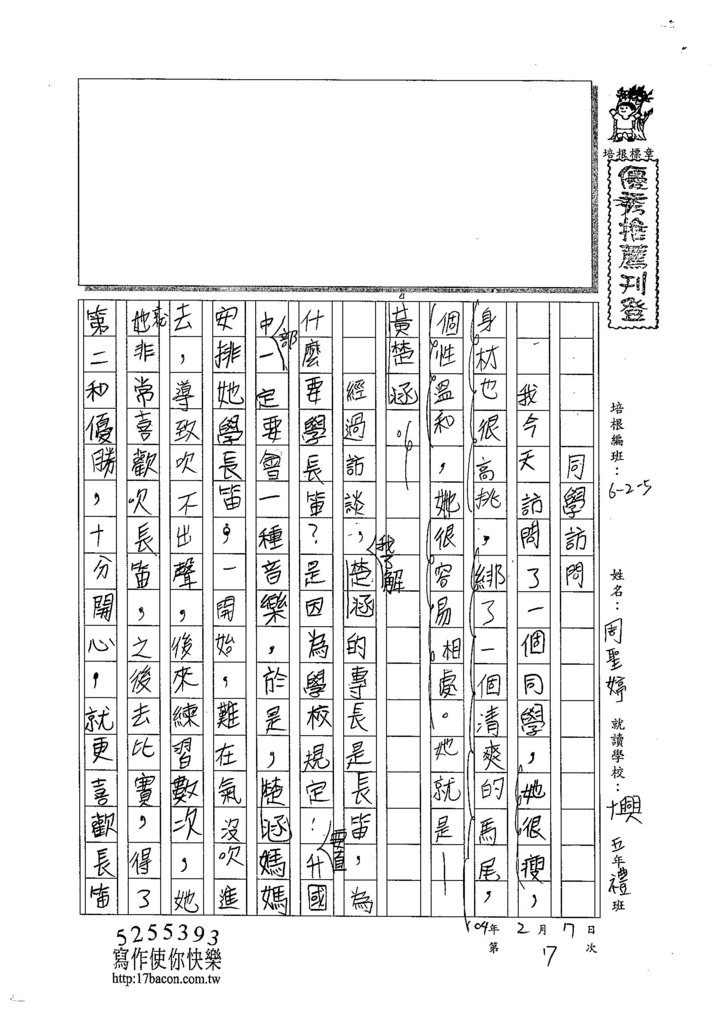 培根標章
優秀推薦刊登
培根編班：6-2-5
姓名：周聖婷
就讀學校：十興 五年禮班
104年2月17日
第17次
同學訪問
我今天訪問了一個同學，她很瘦，
身材也很高挑，綁了一個清爽的馬尾，
個性溫和，她很容易相處。她就是—
黃楚涵。
經過訪談，我了解楚涵的專長是長笛，為
什麼要學長笛？是因為學校規定！要直升國
中部一定要會一種音樂，於是，楚涵媽媽
安排她學長笛，一開始，難在氣沒吹進
去，導致吹不出聲，後來練習數次，她
就她非常喜歡吹長笛，之後去比賽，得了
第二和優勝，十分開心，就更喜歡長笛
5255393
寫作使你快樂
http:17bacon.com.tw